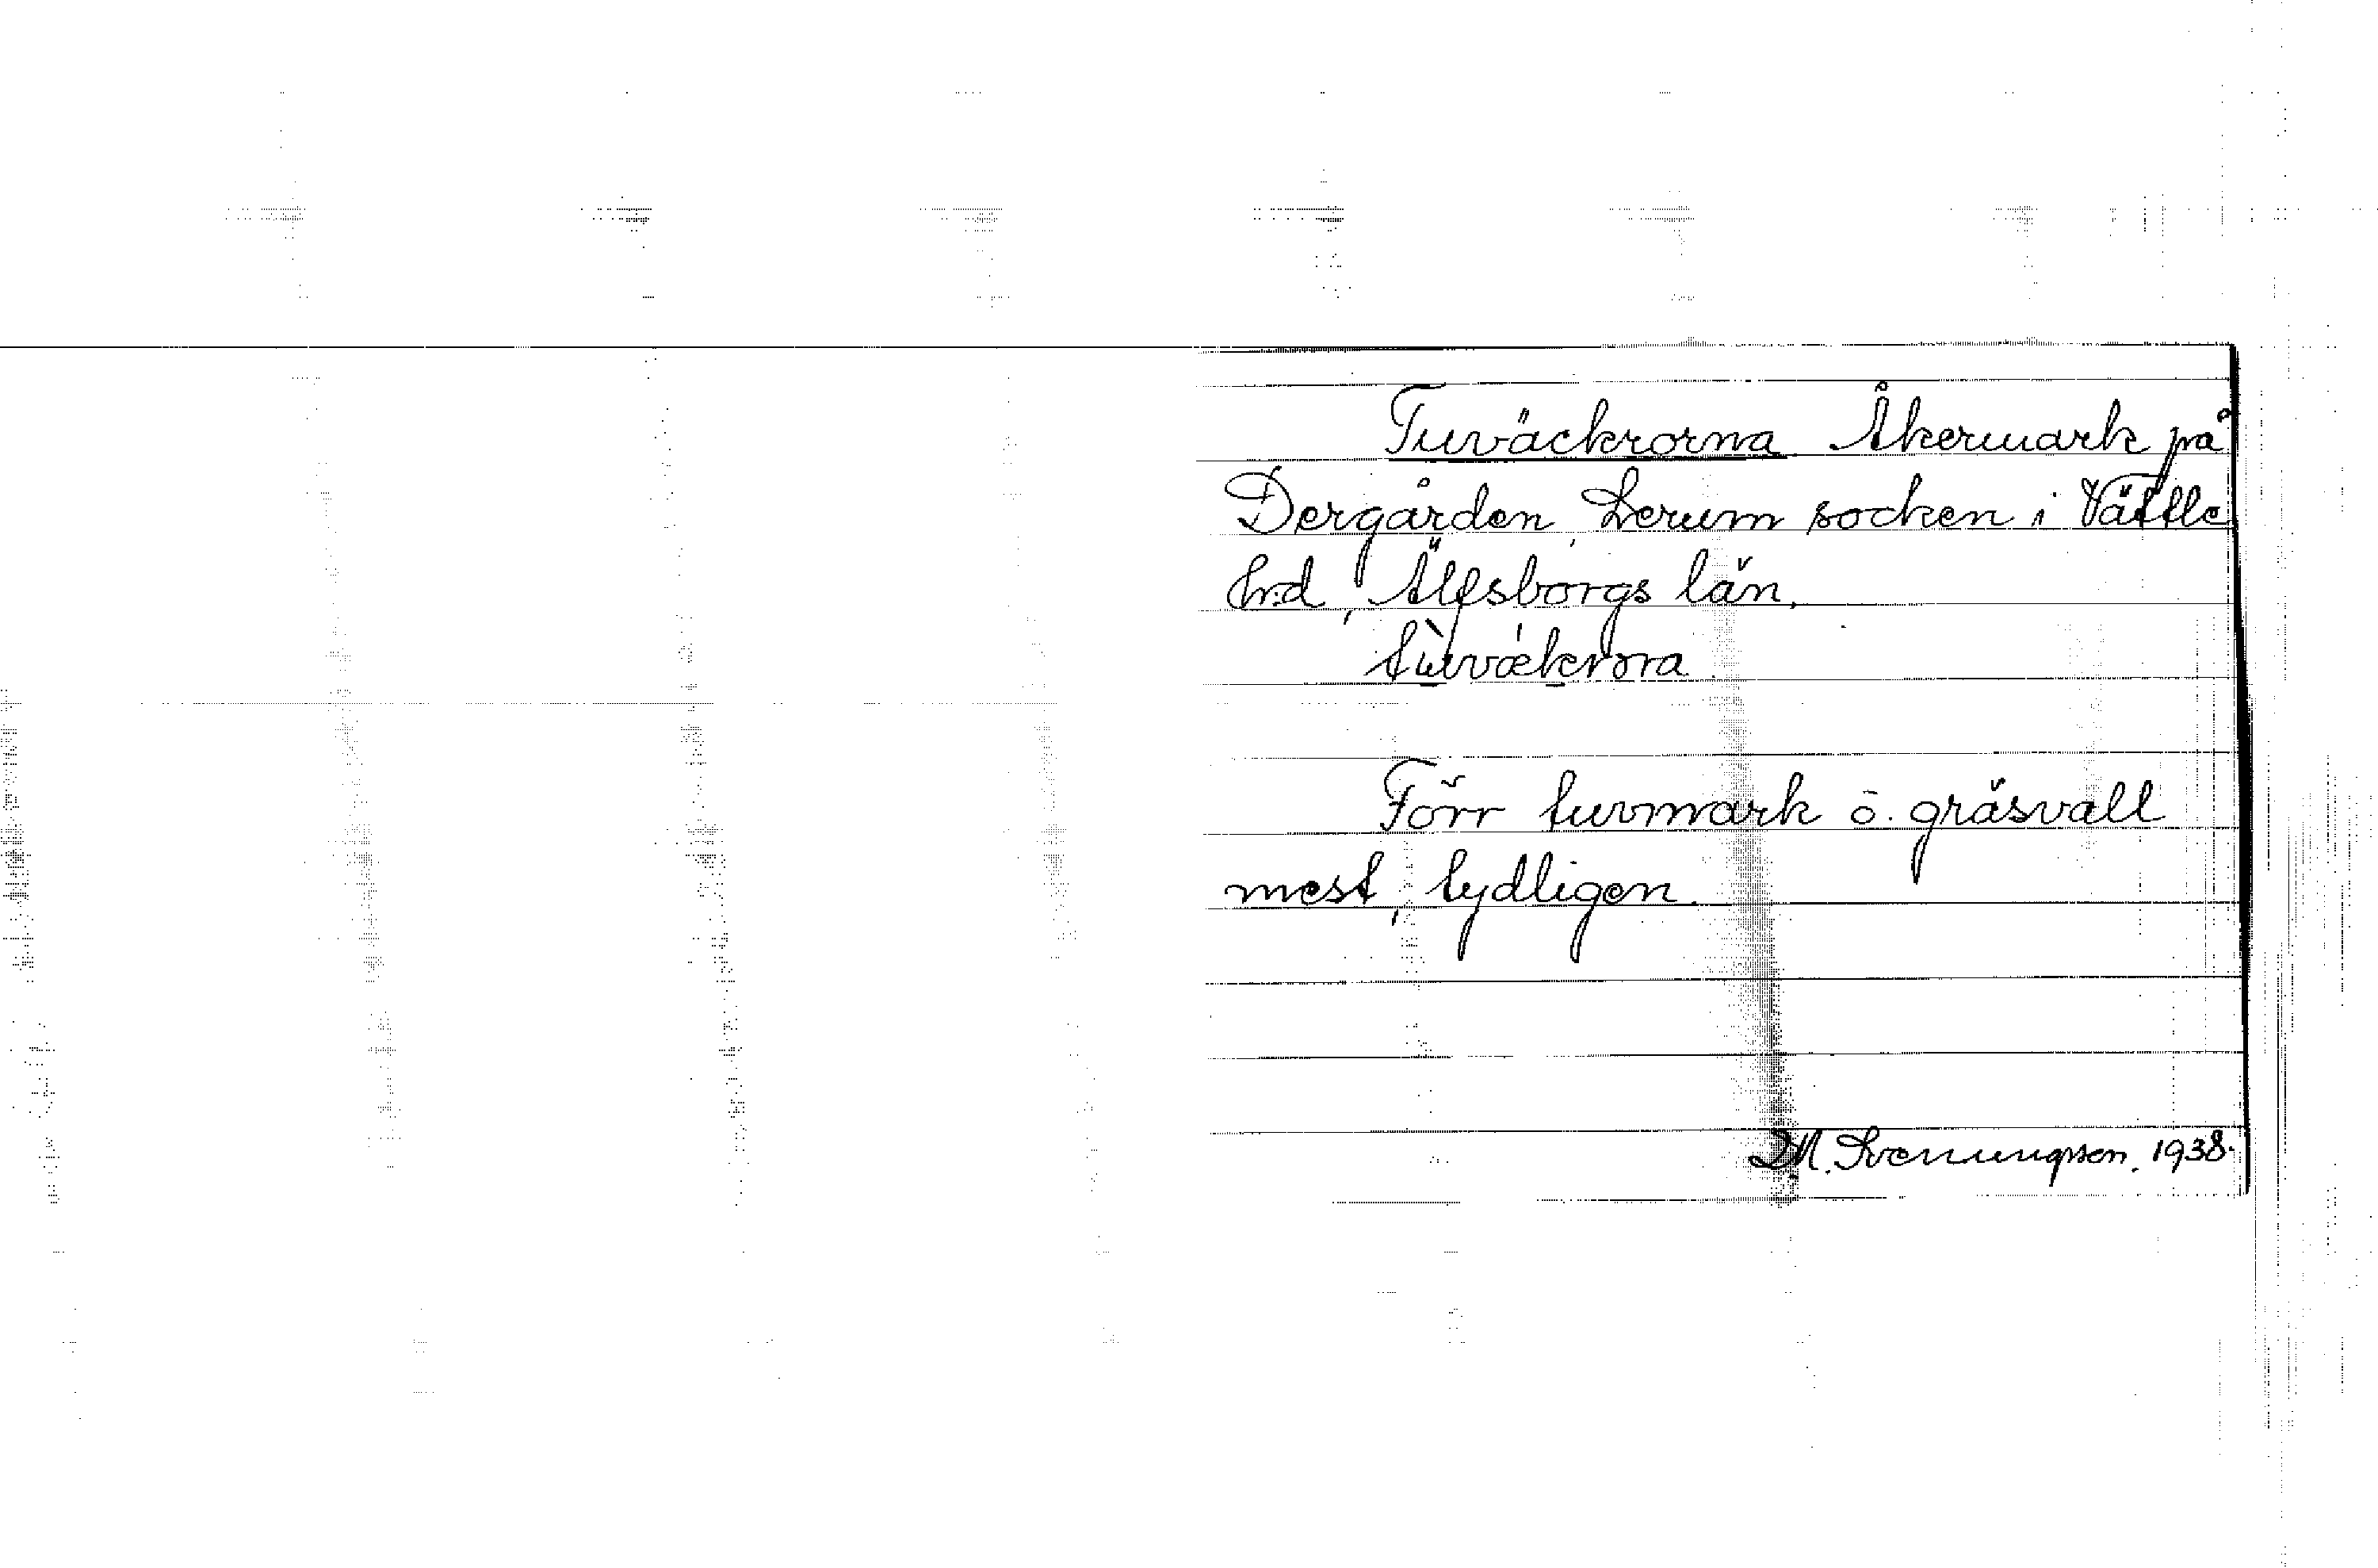 Tuväckrorna Åkermark på
Dergården, Lerum socken i Vättle
hrd, Älfsborgs län.
tùvækrora
Förr tuvmark o. gräsvall
mest, tydligen.
D.M. Svenungsson. 1938.